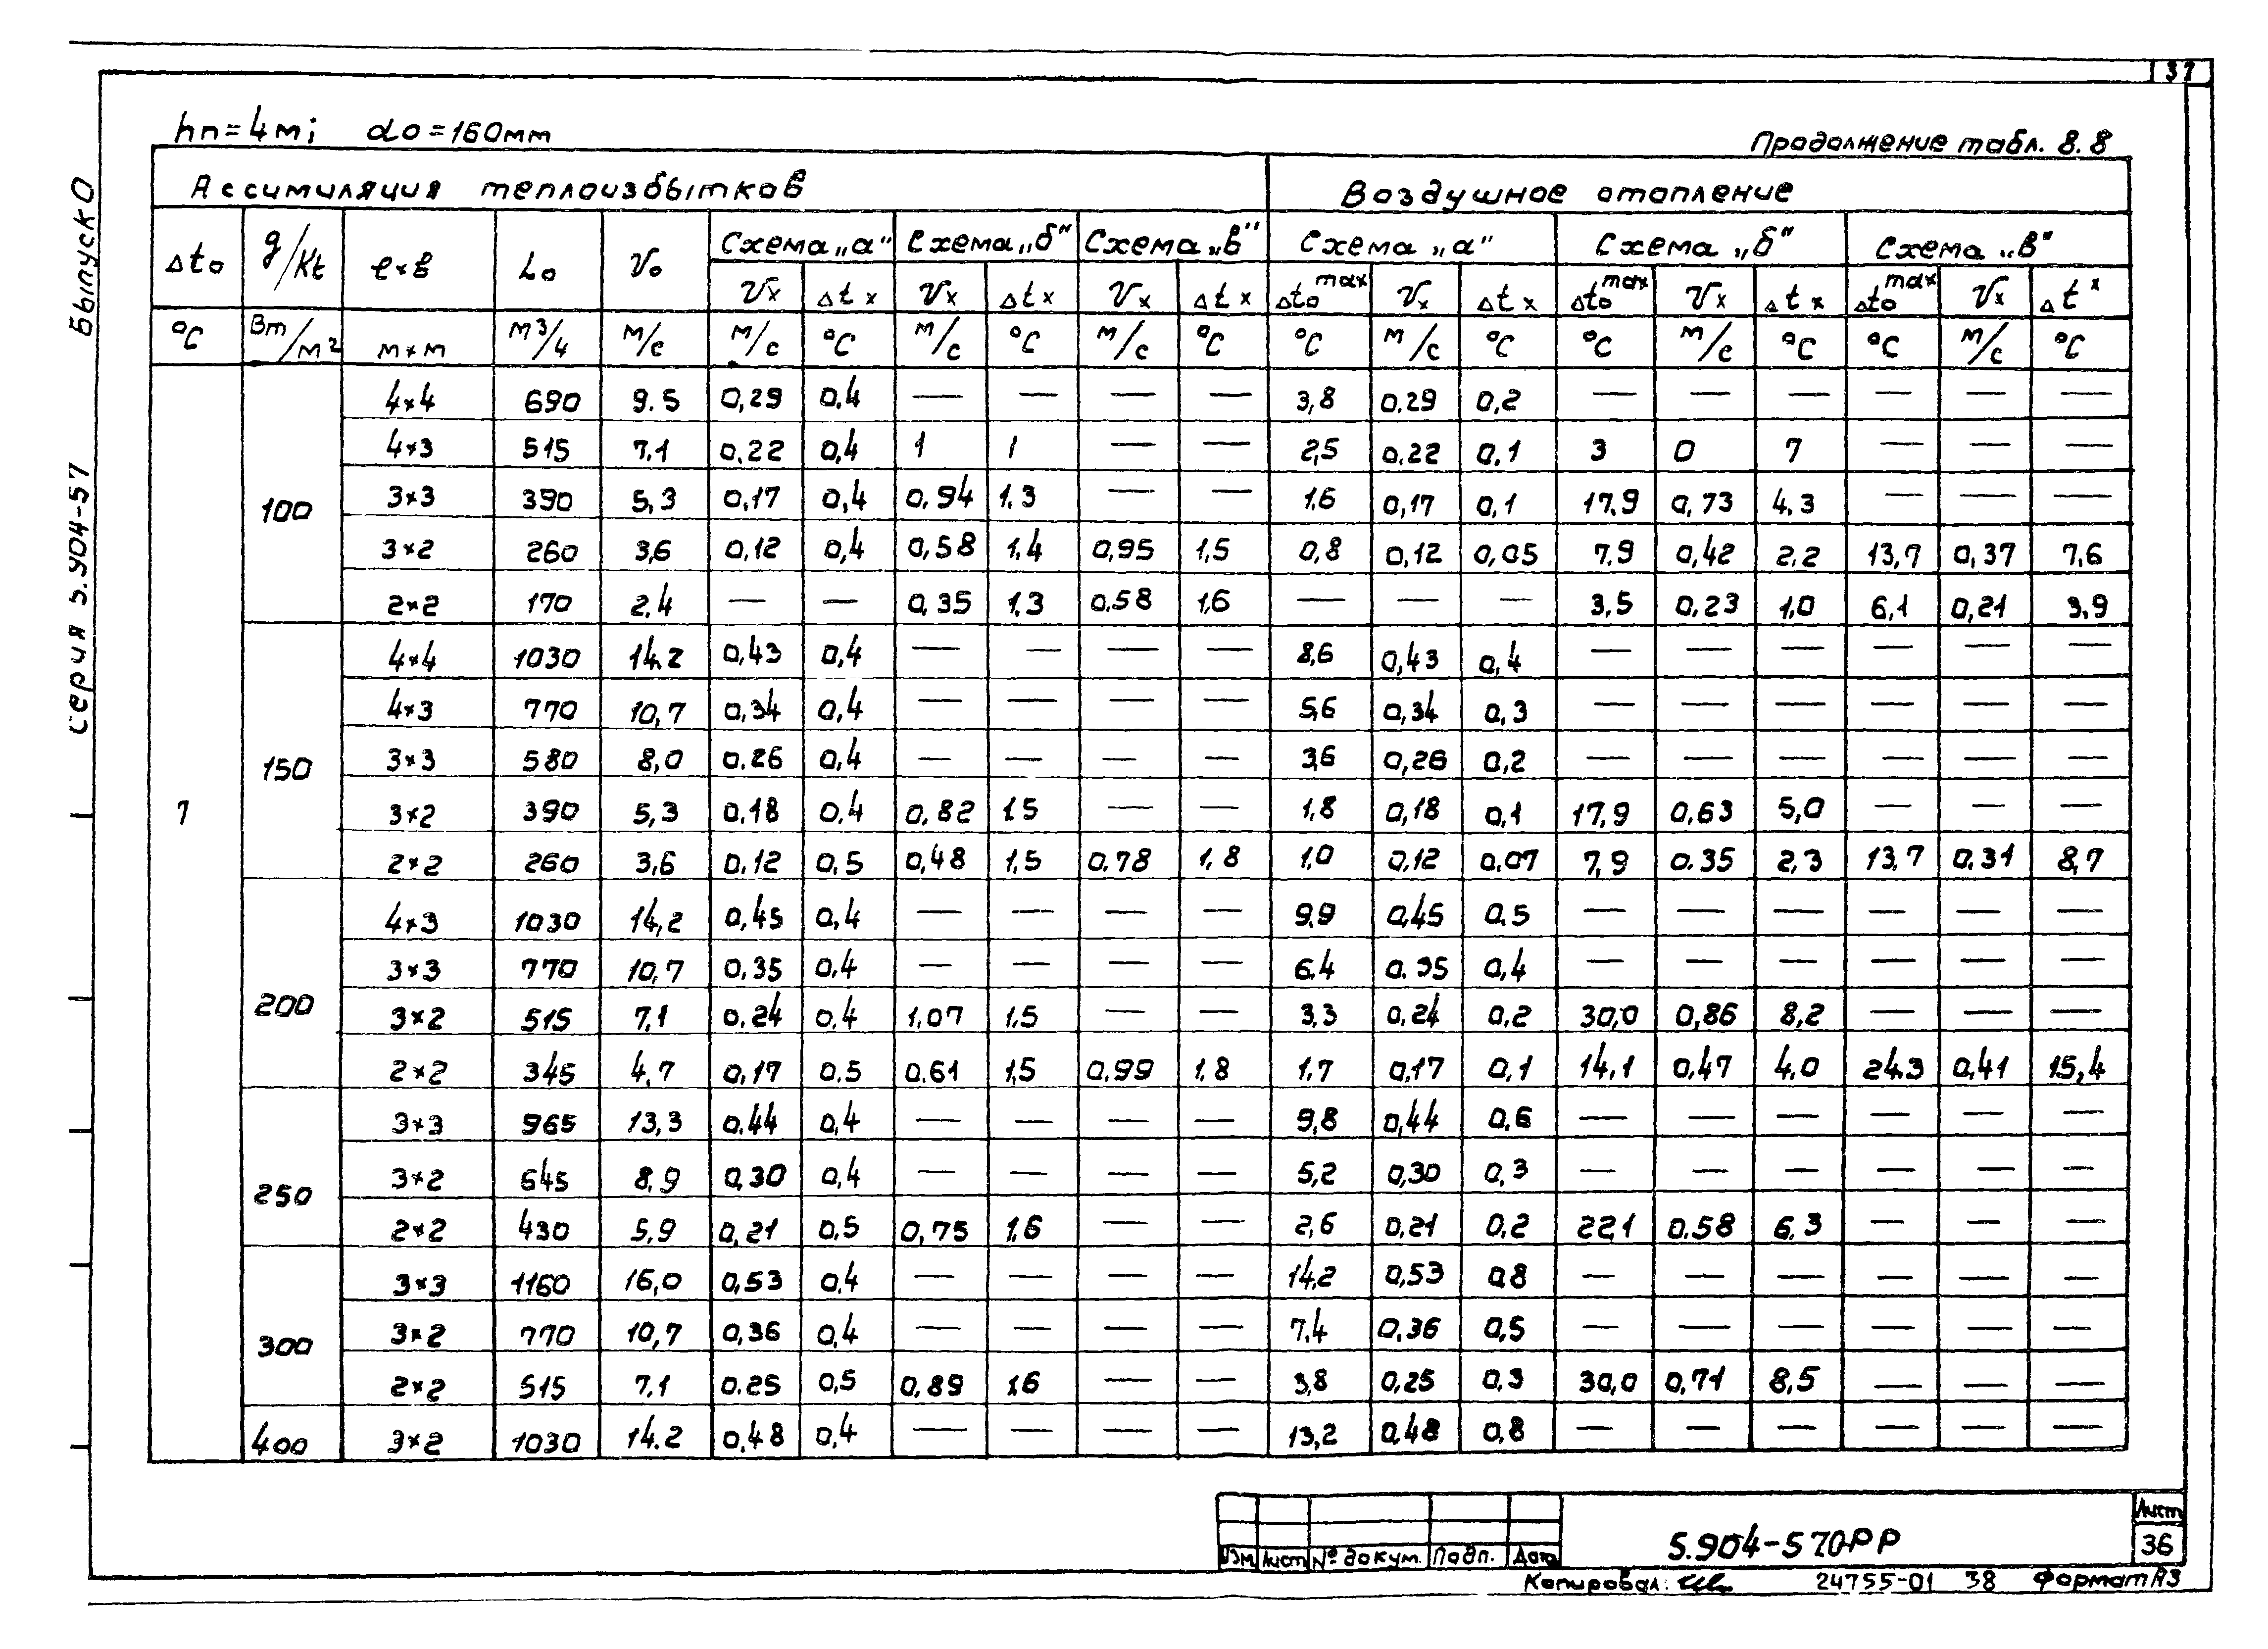 37
hп=4м; do=160мм
Продолжение табл. 8.8
Серия 5.904-57 Выпуск 0
Ассимиляция теплоизбытков Воздушное отопление
Δto q/Kt ℓ×в Lo Vo Схема „а" Схема „б" Схема „в" Схема „а" Схема „б" Схема „в"
Vx Δtx Vx Δtx Vx Δtx Δto max Vx Δtx Δto max Vx Δtx Δto max Vx Δt x
°C Вт/м² м×м м³/ч м/с м/с °C м/с °C м/с °C °C м/с °C °C м/с °C °C м/с °C
1
100 4×4 690 9.5 0,29 0,4 — — — — 3,8 0.29 0,2 — — — — — —
4×3 515 7.1 0.22 0,4 1 1 — — 2,5 0.22 0.1 3 0 7 — — —
3×3 390 5,3 0,17 0,4 0,94 1,3 — — 1,6 0,17 0,1 17,9 0,73 4.3 — — —
3×2 260 3,6 0,12 0,4 0,58 1,4 0,95 1,5 0,8 0,12 0,05 7.9 0,42 2.2 13,7 0,37 7,6
2×2 170 2,4 — — 0,35 1,3 0,58 1,6 — — — 3,5 0,23 1,0 6,1 0,21 3,9
150 4×4 1030 14.2 0,43 0,4 — — — — 8,6 0,43 0,4 — — — — — —
4×3 770 10,7 0,34 0,4 — — — — 5,6 0,34 0,3 — — — — — —
3×3 580 8,0 0.26 0,4 — — — — 3,6 0,26 0,2 — — — — — —
3×2 390 5,3 0,18 0,4 0,82 1,5 — — 1,8 0,18 0,1 17,9 0,63 5,0 — — —
2×2 260 3,6 0,12 0,5 0,48 1,5 0,78 1,8 1,0 0,12 0,07 7,9 0.35 2,3 13,7 0.31 8,7
200 4×3 1030 14,2 0,45 0,4 — — — — 9,9 0,45 0,5 — — — — — —
3×3 770 10,7 0,35 0,4 — — — — 6.4 0.35 0,4 — — — — — —
3×2 515 7,1 0,24 0,4 1,07 1,5 — — 3,3 0,24 0,2 30,0 0,86 8,2 — — —
2×2 345 4,7 0,17 0.5 0.61 1,5 0,99 1,8 1,7 0,17 0,1 14,1 0,47 4,0 24,3 0,41 15,4
250 3×3 965 13,3 0.44 0,4 — — — — 9,8 0,44 0,6 — — — — — —
3×2 645 8,9 0,30 0,4 — — — — 5,2 0,30 0,3 — — — — — —
2×2 430 5,9 0,21 0,5 0,75 1,6 — — 2,6 0,21 0,2 22,1 0.58 6,3 — — —
300 3×3 1160 16,0 0,53 0,4 — — — — 14,2 0,53 0,8 — — — — — —
3×2 770 10,7 0,36 0,4 — — — — 7.4 0,36 0,5 — — — — — —
2×2 515 7,1 0.25 0,5 0,89 1,6 — — 3,8 0,25 0,3 30,0 0,71 8,5 — — —
400 3×2 1030 14.2 0,48 0,4 — — — — 13,2 0,48 0,8 — — — — — —
Изм Лист № докум. Подп. Дата 5.904-57.0РР Лист 36
Копировал: 24755-01 38 Формат А3